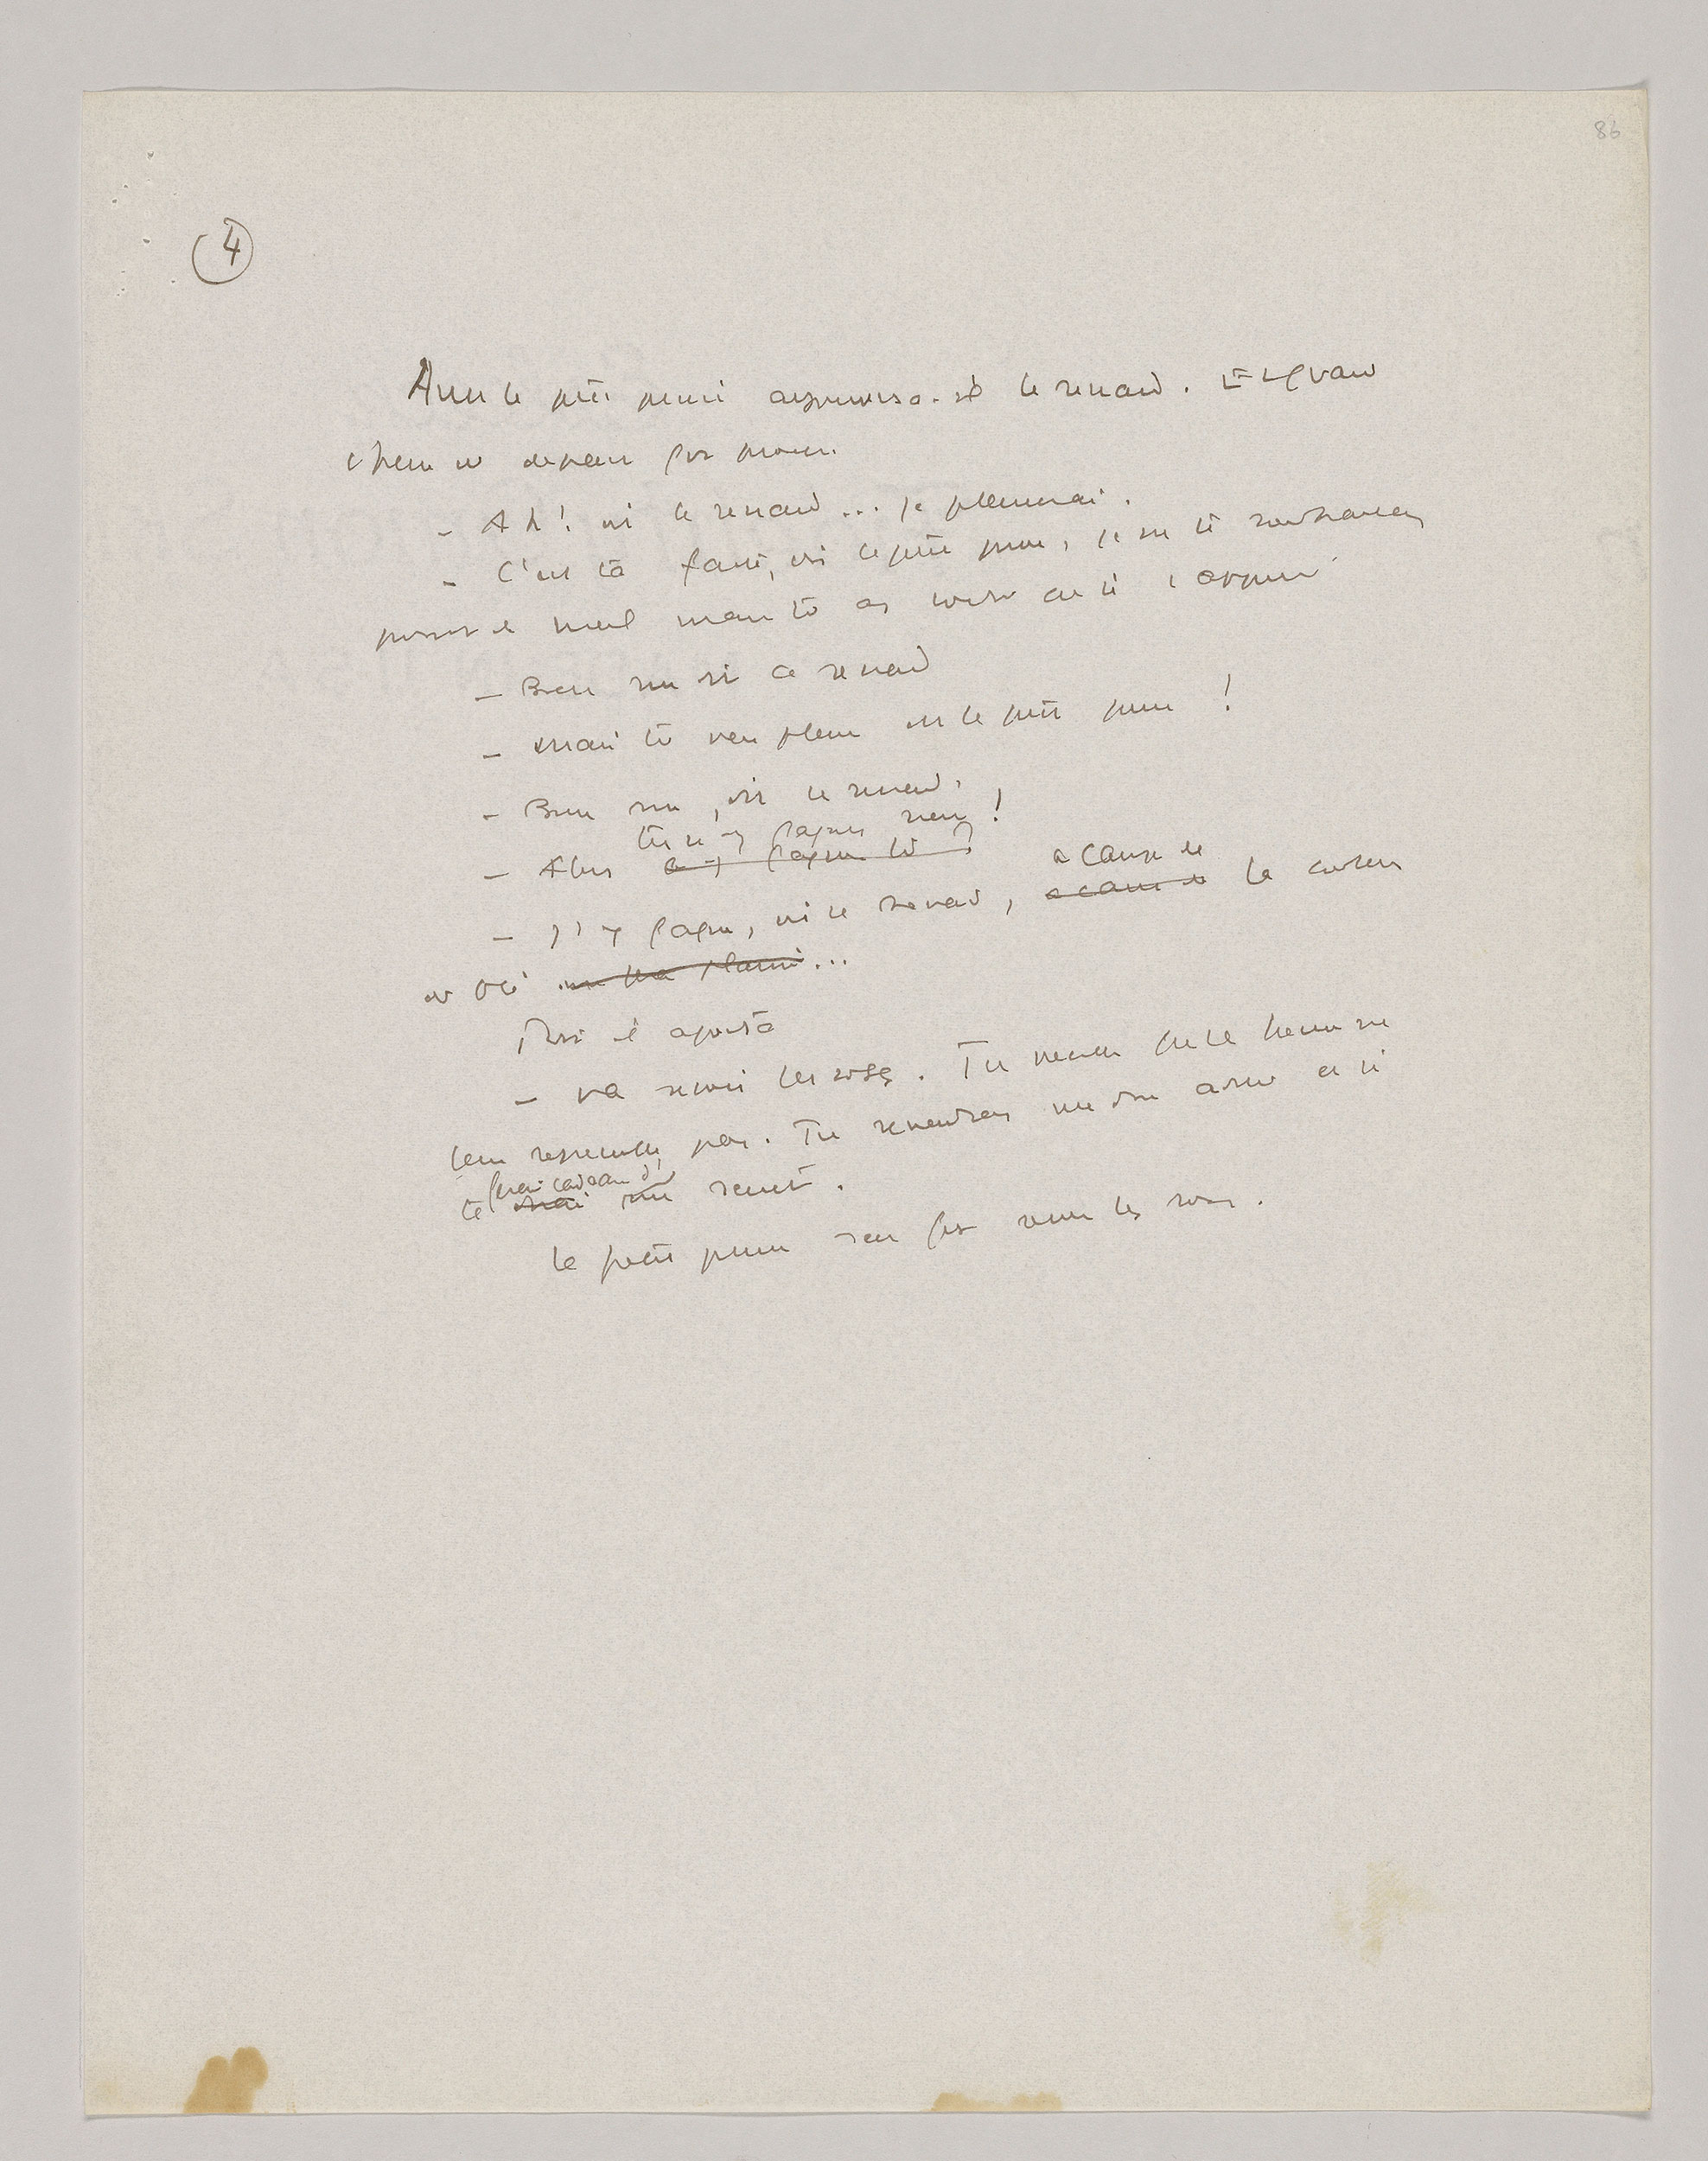 86
4
Ainsi le petit prince apprivoisa le renard. Et quand
l'heure du depart fut proche.
- Ah! dit le renard... je pleurerai.
- C'est ta faute, dit le petit prince, je ne te souhaitais
point de mal mais tu as voulu que je t'apprivoise
- Bien sur dit le renard
- Mais tu vas pleurer dit le petit prince !
- Bien sur, dit le renard.
tu n'y gagnes rien !
- Alors y gagnes tu ?
a cause de
- J'y gagne, dit le renard, a cause de la couleur
du blé ...
Puis il ajouta
- Va revoir les roses. Tu verras que la tienne ne
leur ressemble pas. Tu reviendras me dire adieu et je
ferai cadeau d'
te dirai un secret.
Le petit prince s'en fut revoir les roses.